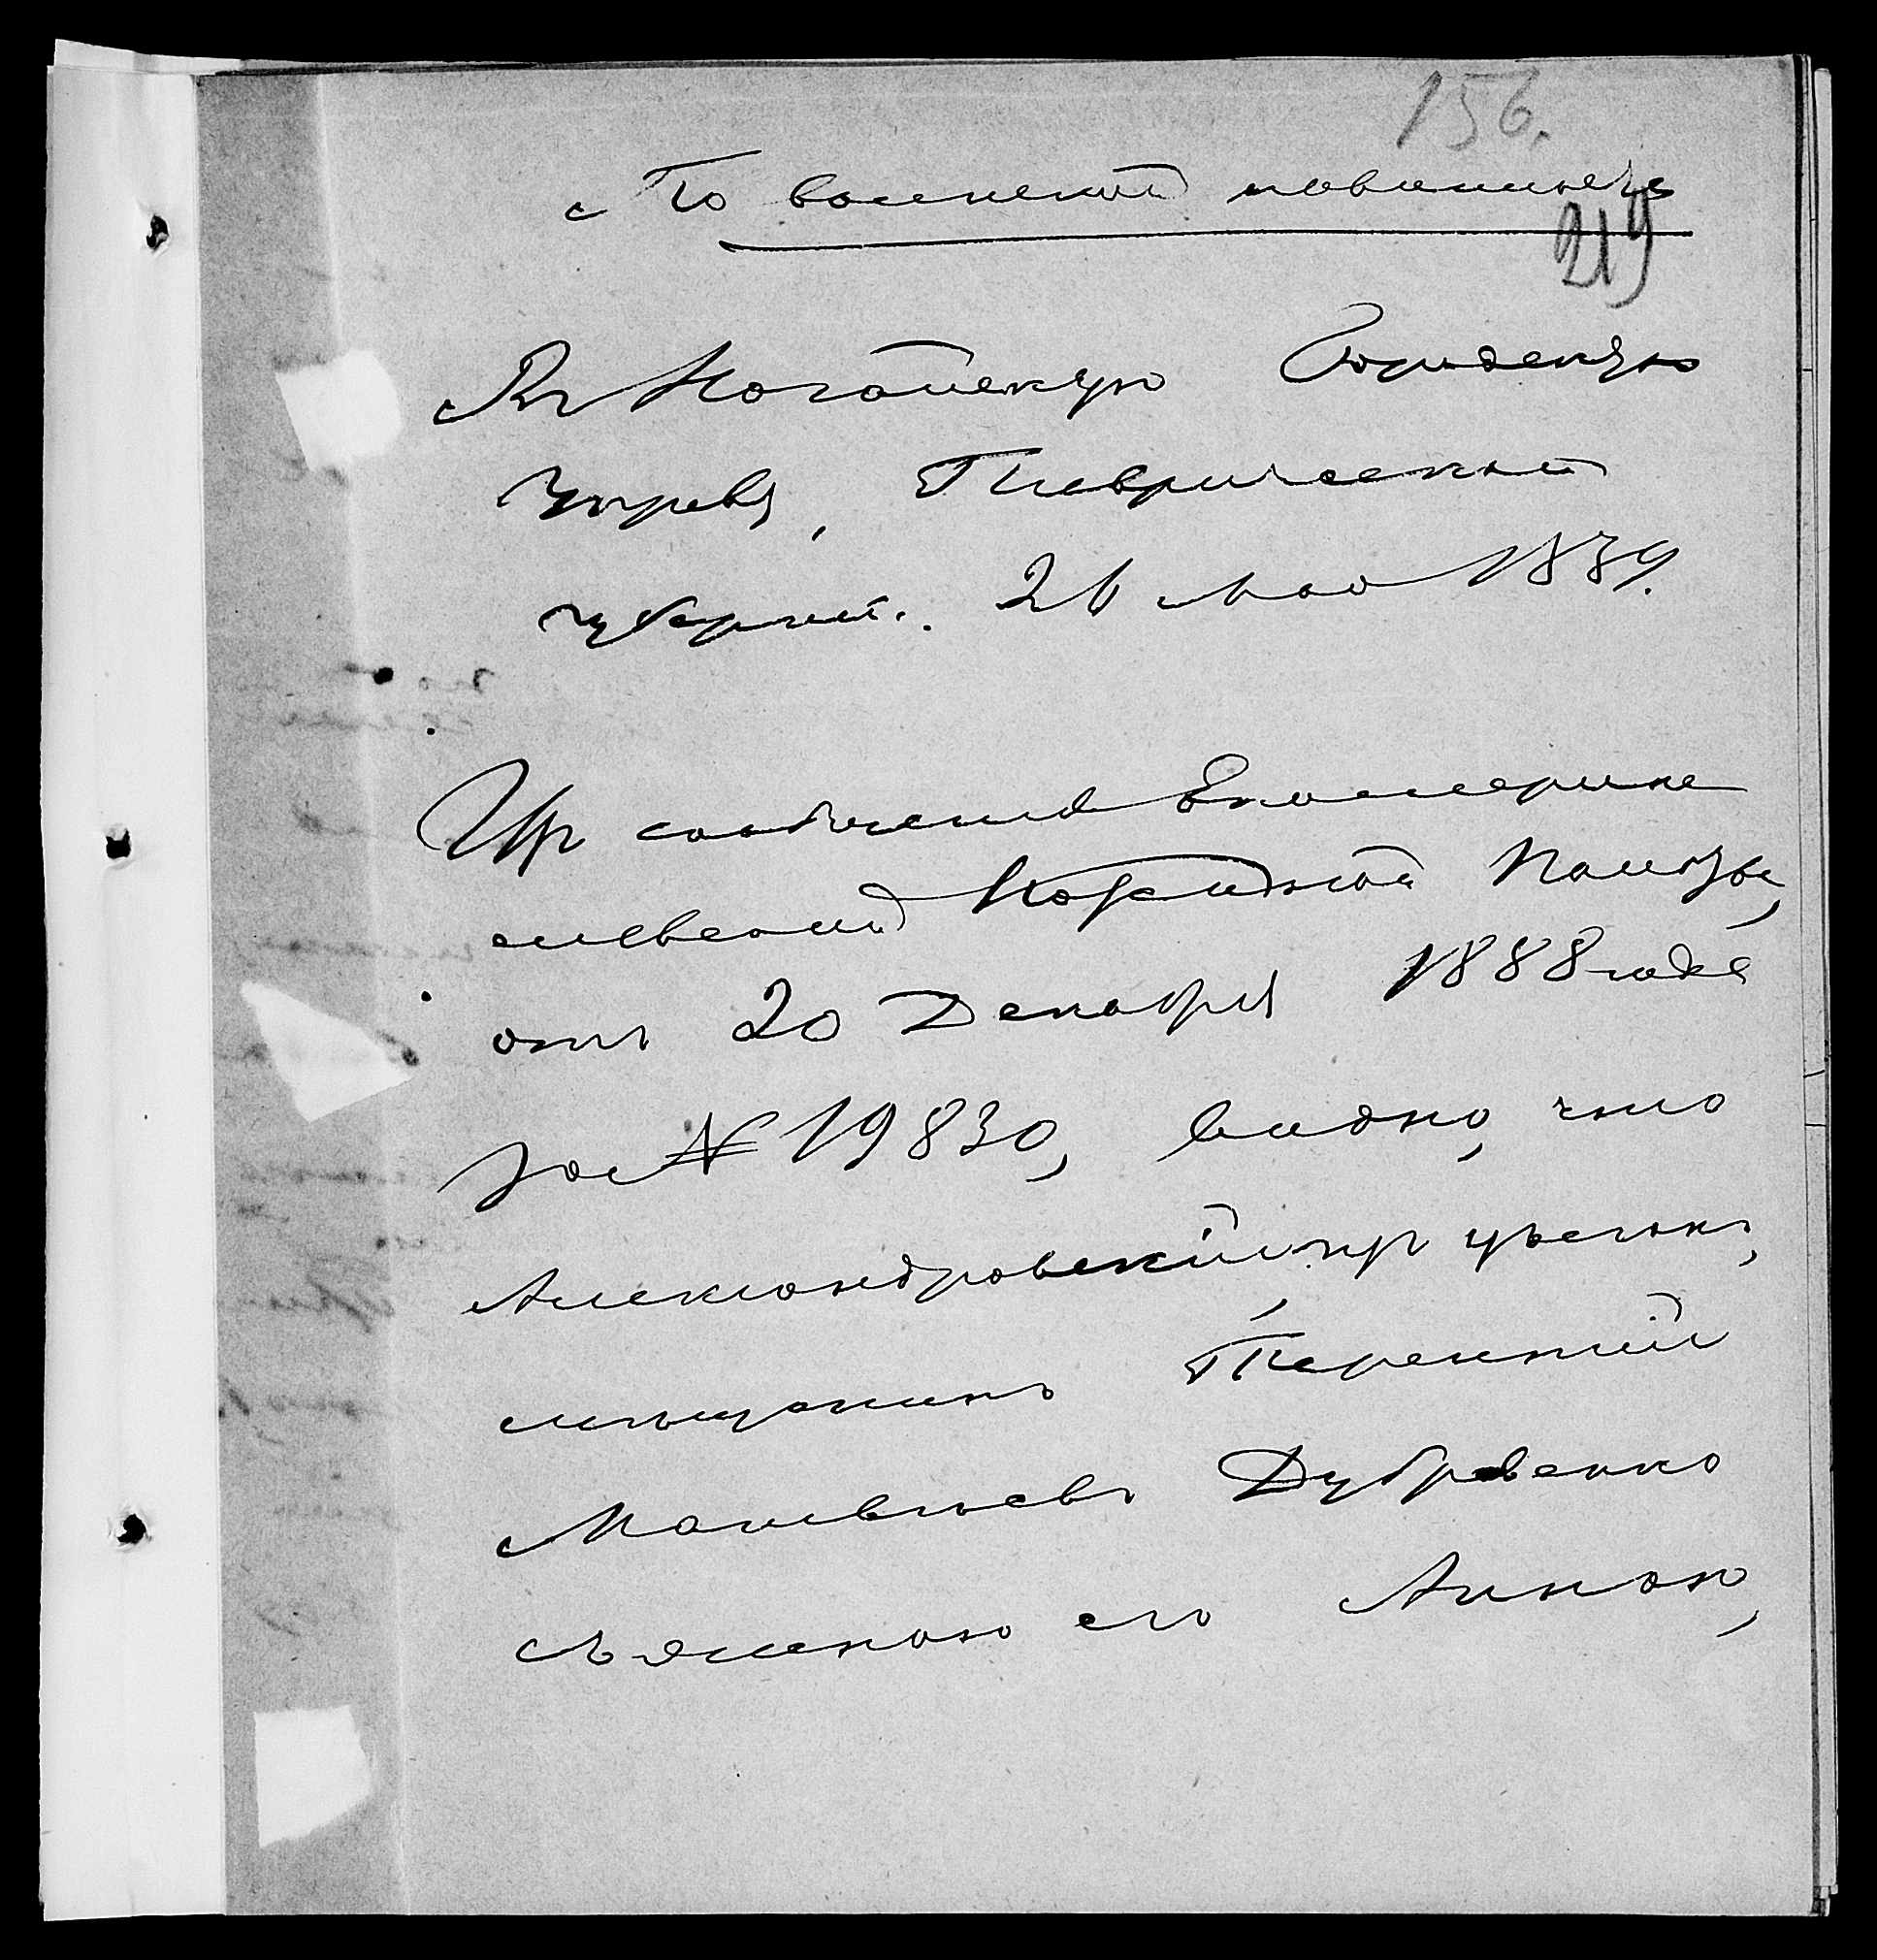 156.
По воинской повинности
219
Въ Ногайскую Городскую
Управу, Таврической
губерніи. 26 мая 1889.
Изъ сообщенія Екатерино
славской Казенной Палаты,
отъ 20 Декабря 1888 года
за № 19830, видно, что
Александровскій, уѣздн.
мѣщанинъ Терентій
Матвѣевъ Дубровенко
съ женою его Анною,